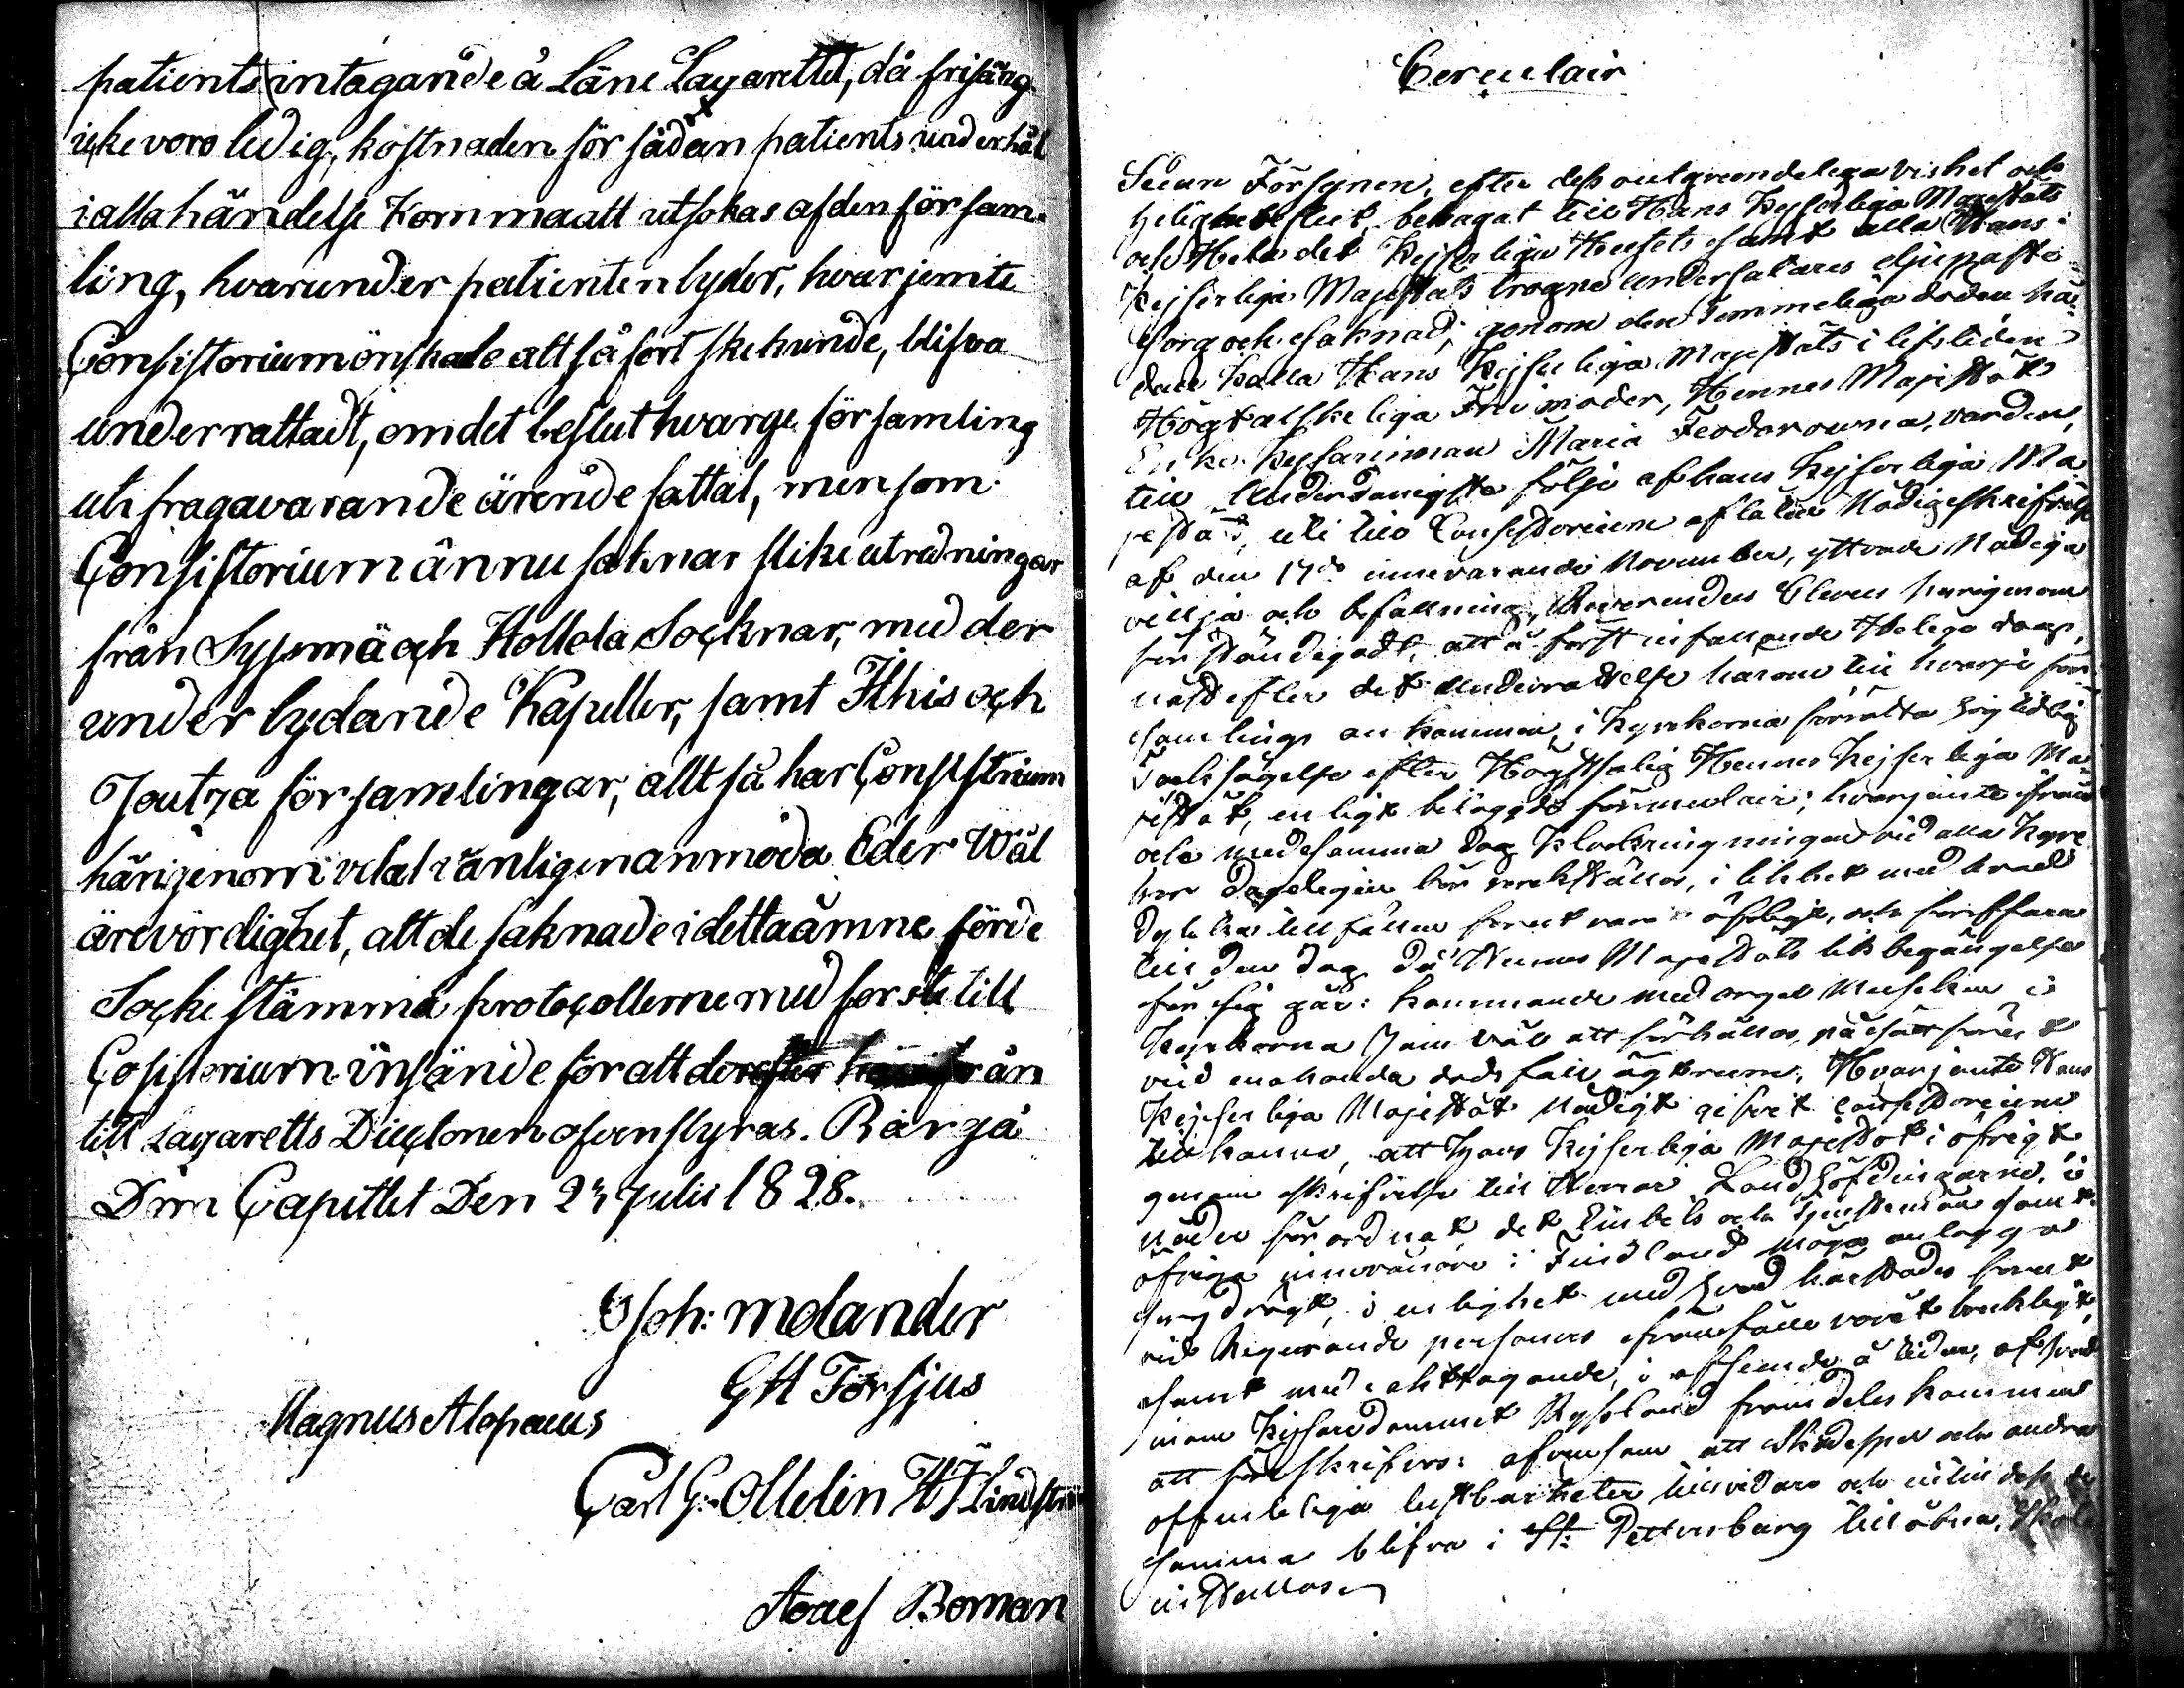 patients intagande å Läne Lazarettet, då frisäng
icke voro ledig, kostnaden för sådan patients underhål
i alla händelse komma att utsökas af den försam-
ling, hvarunder patienten lyder, hvarjemte
Consistorium önskade att så fort ske kunde, blifva
underrattadt, om det beslut hvarge församling
uti fragavarande ärende fattat, men som
Consistorium ännu saknar slike utredningar
från Sysmä och Hollola Socknar, med der
under lydande Kapeller, samt Ithis och
Joutza församlingar, allt så har Consistorium
härigenom velat vänligen anmoda Eder Wäl
ärevördighet, att de saknade i detta ämne förde
Socke stämma protocollerne med forste till
Cosistorium insände för att derefter härifrån
till Lazaretts Directionen ofvenstyras. Bårgå
Dom Capitlet Den 23 Julii 1828.
Joh: Molander
GH Forsjus
Magnus Alopaeus
Carl G. Ottelin HJ Lindströ
Aoraes Boman
Cerculair
Sedan Försynen, efter dess outgrundeliga vishet och
helighet slut behagat till Hans Kejserliga Majestäts
och Hela det Kejserliga Husets samt alla Hans
Kejserliga Majestäts trogne undersåtares djupaste
sorg och saknad, genom den timmeliga döden hä-
dan kalla Hans Kejserliga Majestäts i lifstiden
Högtälskeliga Fru moder, Hennes Majestät
Enke Kejsarinnan Maria Feodorowna, varder,
till Underdånigste följe af hans Kejserliga Ma
jestäts, uti till Consistorium aflåten Nådige skrifvelse
af den 17de innevarande November, yttrade Nådiga
vilja och befallning, Reverendus Clerus harigenom
förständigadt, att å först infallande Helige dag,
näst efter det underrättelse harom till hvarje för
samlings an kommen, i Kyrkorna förrätta högtidlig
Tacksägelse efter Högtsalig Hennes Kejserliga Ma-
jestät, enligt bilagde formulair; hvarjemte ifrån
och med samma dag Klockringningar vid alla Kyrk
kor dageligen bör verkställas, i likhet med hvad
dylika tillfällen forut varit öfligt, och fortfara
till den dag då Hennes Majestäts likbegängelse
för sig går: kommande med orgel Musiken i
Kyrkorna Jemväl att förhållas, på sätt förut
vid enahanda dödsfall ägt rum. Hvarjemte Hans
Kejserliga Majestät Nådigt gifvit Consistorium
tillkänna, att Hans Kejserliga Majestät i öfrigt
genom skrifvelse till Herrar Landshöfdingarne, i
nåder förordnat det Embets och tjenstemän samt
öfriga innevånare i Finland måga anlägga
sorgdrägt, i enlighet med hvad harstädes forut
vid Regerande personers frånfälle varit brukligt,
samt med iakttagande, i afseende å tiden, af hvad
inom Kejsaredömmet Ryssland framdeles kommer
att föreskrifvas: afvensom att Skådespel och andra
offenteliga lustbarheter tillsvidare och intill dess de
samma blifva i St: Pettersburg tillåtna, Skola
inställas.